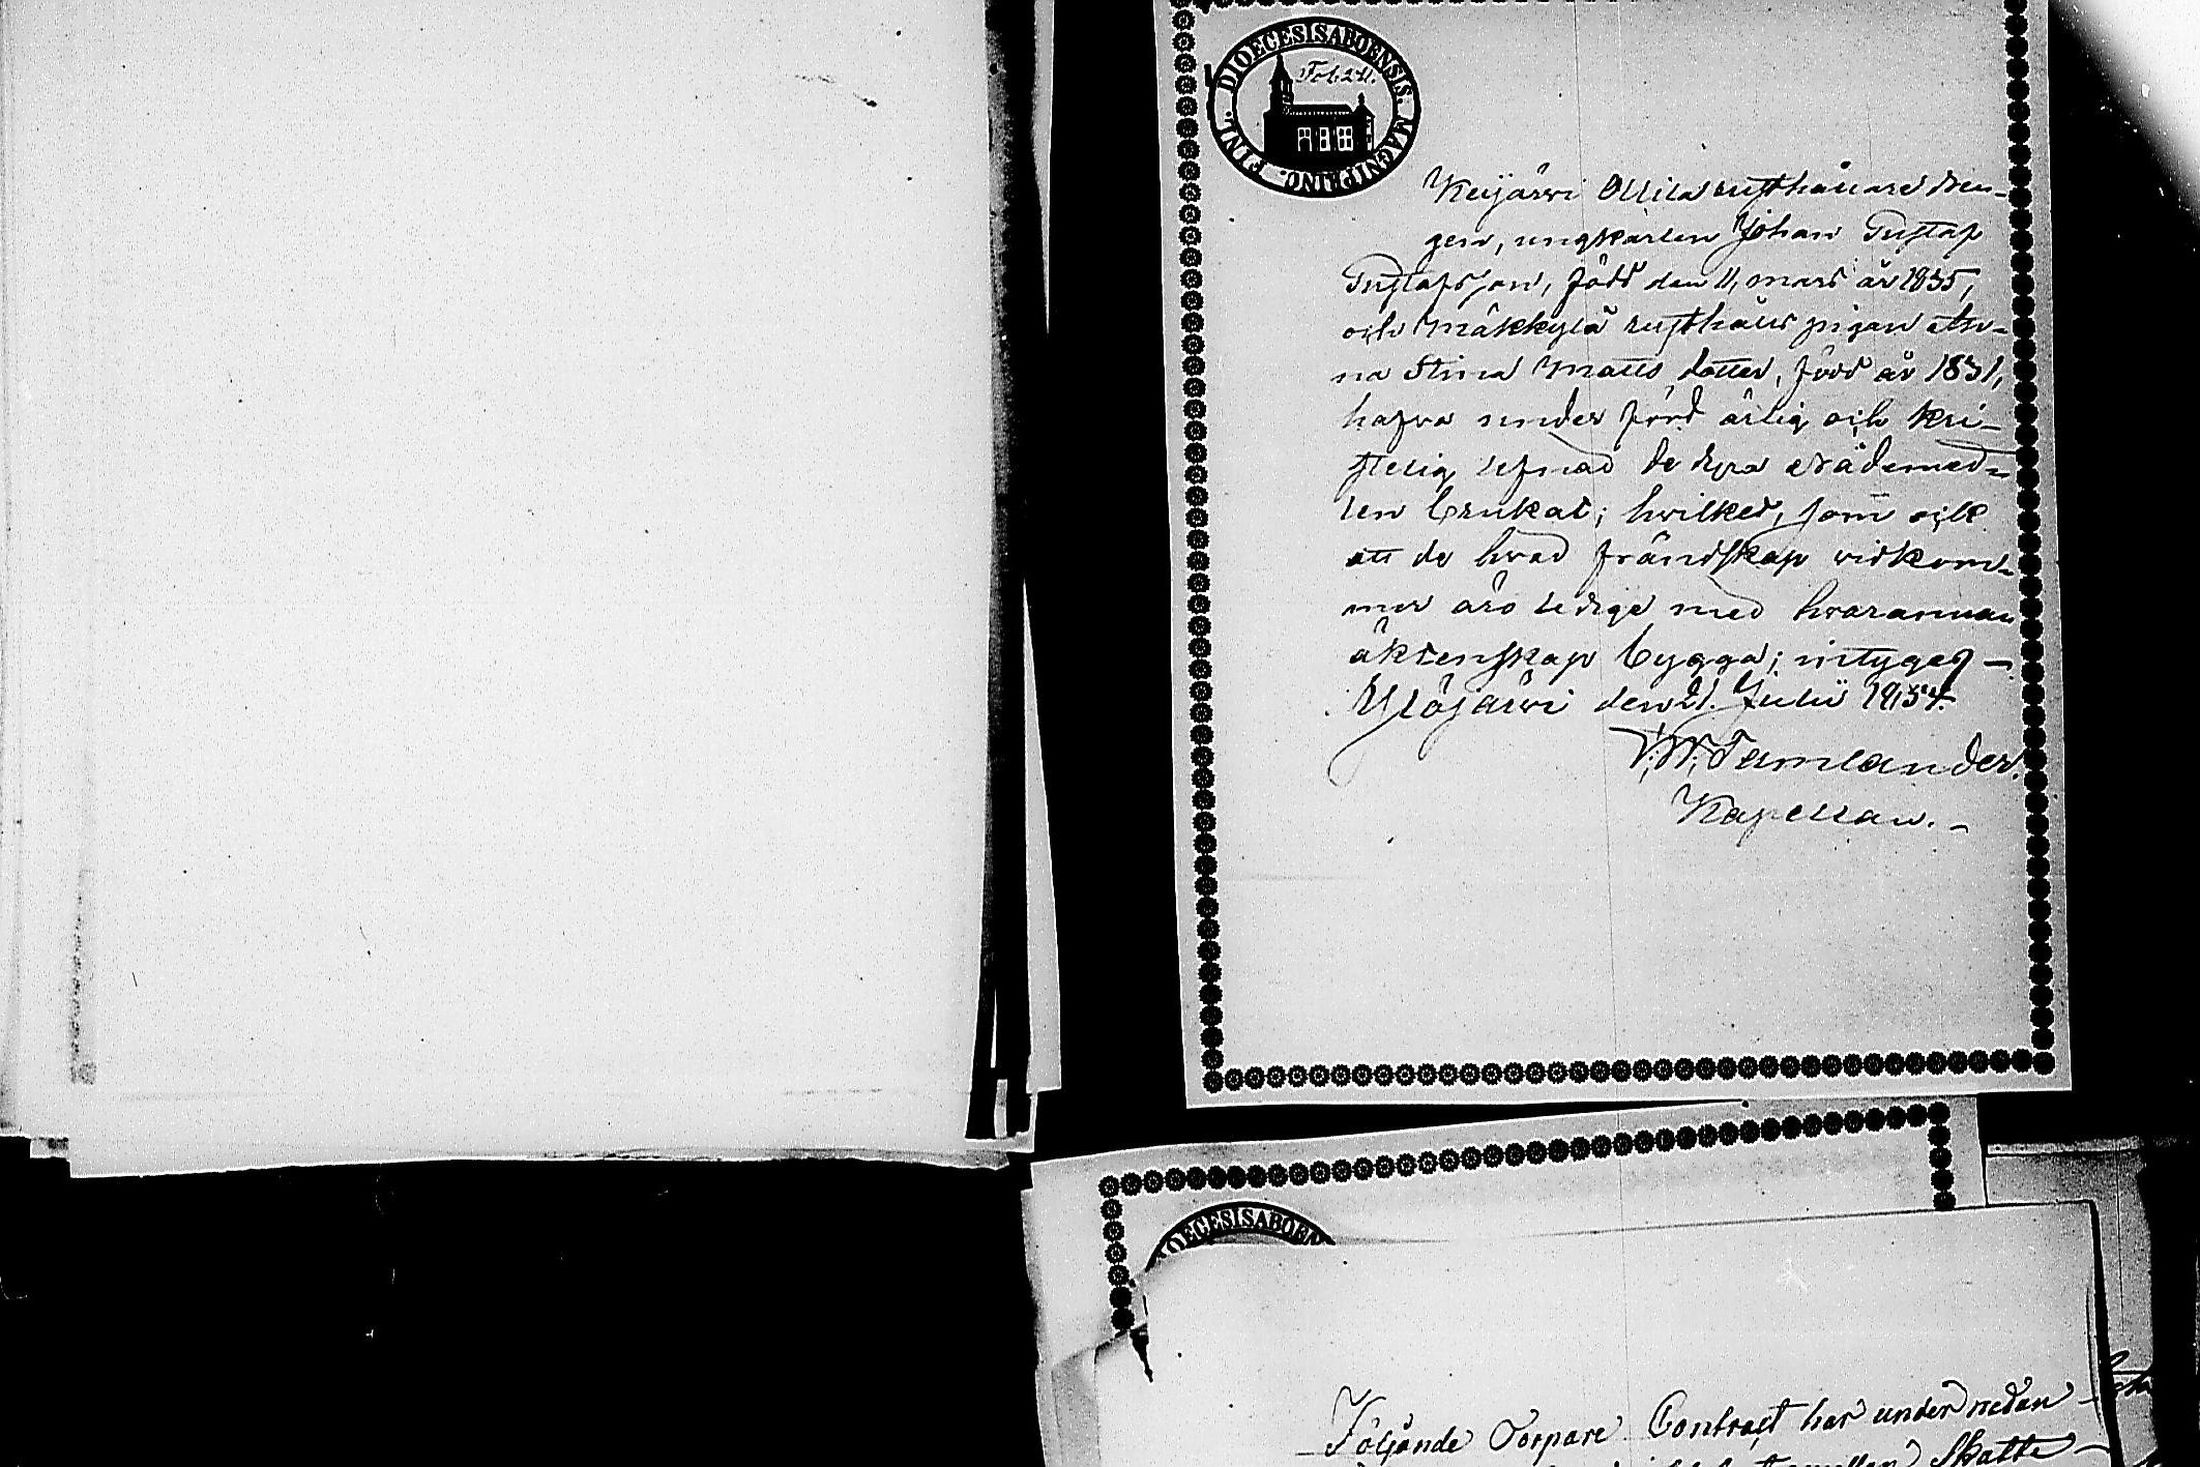 DIOECESIS ABOENSIS. MAGNI PRINC. FINL.
Fol. 241.
Keijärwi Ollila rusthållare dren-
gen, ungkarlen Johan Gustaf
Gustafsson, född den 11, mars år 1835,
och Mäkkylä rusthålls pigan An-
na Stina Matts dotter, född år 1831,
hafva under förd ärlig och kri-
stelig lefnad de dyra nådemed-
len brukat; hwilket, som ock
att de hvad frändskap widkom-
mer äro ledige med hvarannan
äktenskap bygga; intygas —
Ylöjärwi den 21. Julii 1854.
Tamlander.
Kapellan. —
OECESIS ABOEN
Följande Torpare Contract har under nedan-
Skatte-